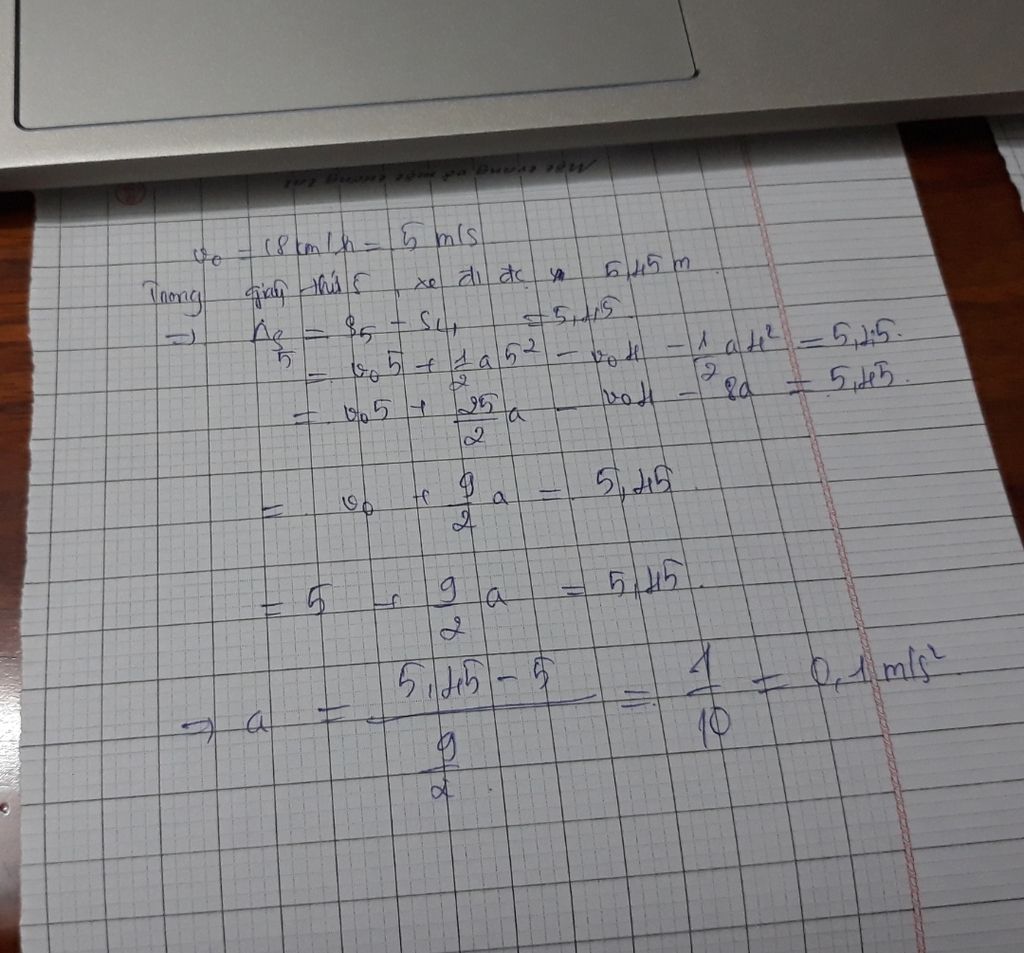 v₀ = 18 km/h = 5 m/s
Trong giây thứ 5, xe đi đc 5,45 m
=> Δs₅ = s₅ - s₄ = 5,45.
= v₀5 + 1/2 a 5² - v₀4 - 1/2 a4² = 5,45.
= v₀5 + 25/2 a - v₀4 - 8a = 5,45.
= v₀ + 9/2 a = 5,45
= 5 + 9/2 a = 5,45.
=> a = (5,45 - 5) / (9/2) = 1/10 = 0,1 m/s²